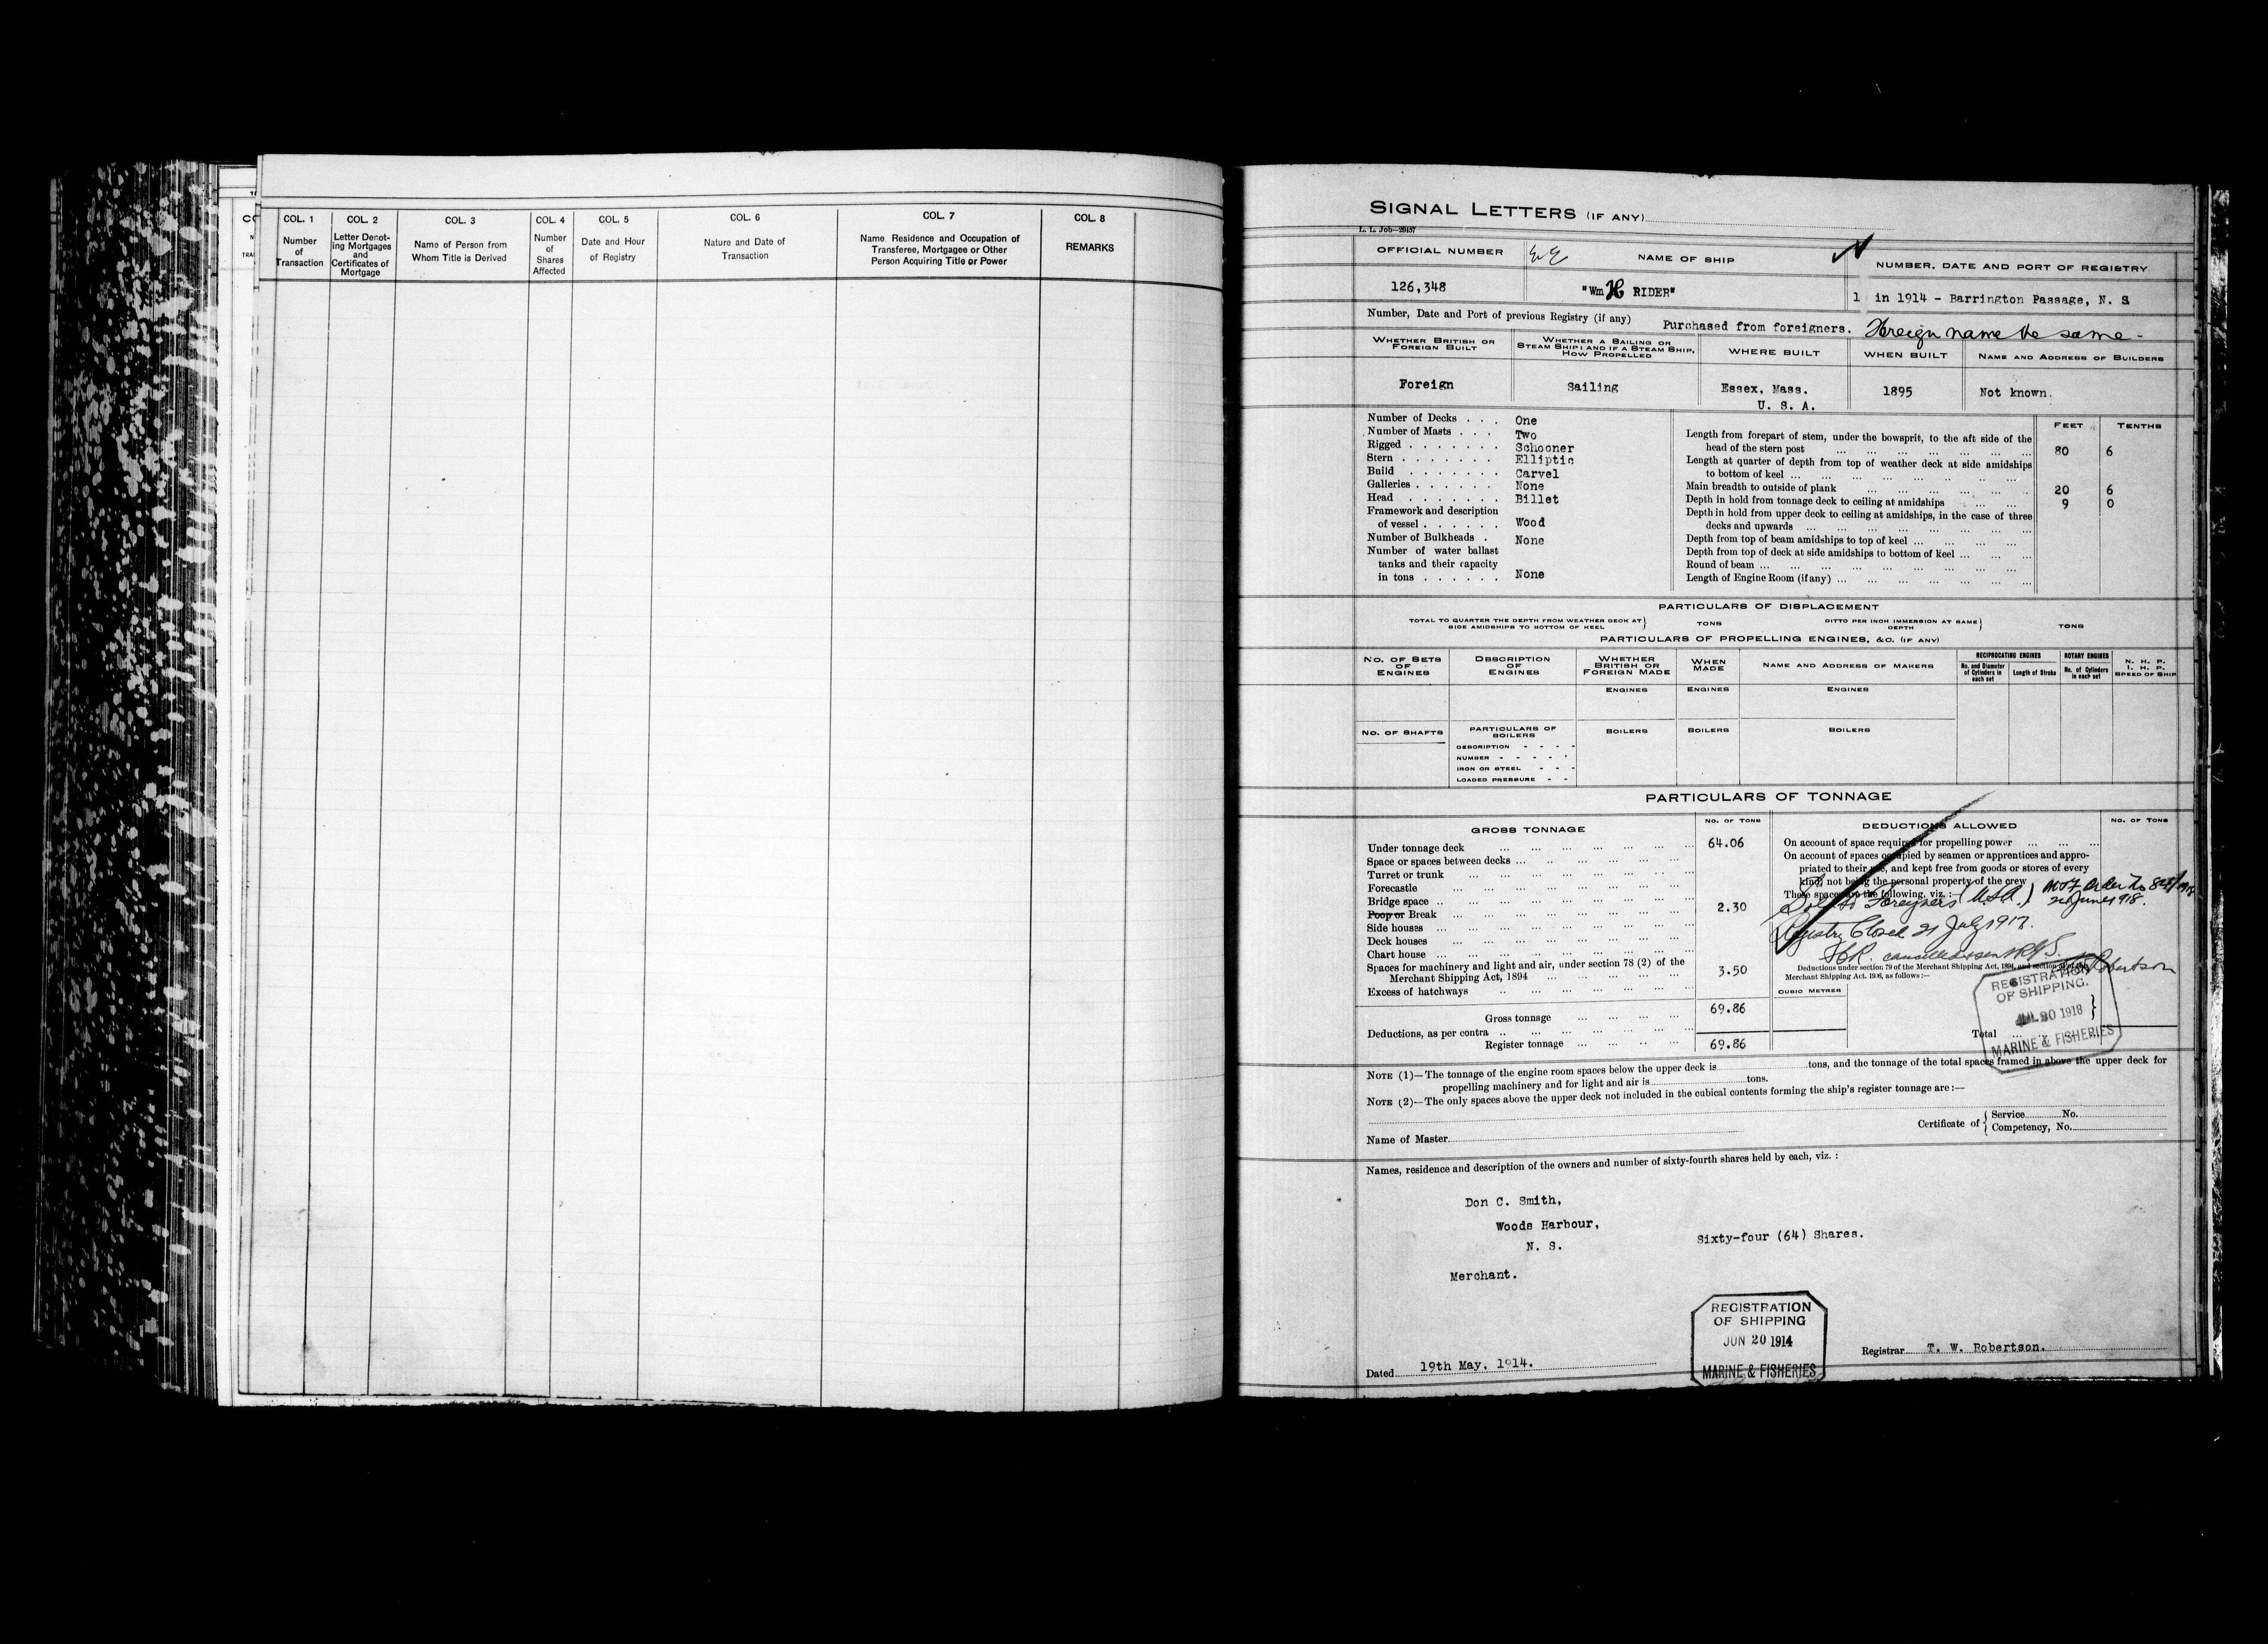 COL. 1
Number
of
Transaction
COL. 2
Letter Denot-
ing Mortgages
and
Certificates of
Mortgage
COL. 3
Name of Person from
Whom Title is Derived
COL. 4
Number
of
Shares
Affected
COL. 5
Date and Hour
of Registry
COL. 6
Nature and Date of
Transaction
COL. 7
Name Residence and Occupation of
Transferee, Mortgagee or Other
Person Acquiring Title or Power
COL. 8
REMARKS
SIGNAL LETTERS (IF ANY)
L. L. Job—29457
OFFICIAL NUMBER
126,348
NAME OF SHIP
"Wm H RIDER"
NUMBER, DATE AND PORT OF REGISTRY
1 in 1914 - Barrington Passage, N. S
Number, Date and Port of previous Registry (if any) Purchased from foreigners. Foreign name the same -
WHETHER BRITISH OR
FOREIGN BUILT
Foreign
WHETHER A SAILING OR
STEAM SHIP; AND IF A STEAM SHIP,
HOW PROPELLED
Sailing
WHERE BUILT
Essex, Mass.
U. S. A.
WHEN BUILT
1895
NAME AND ADDRESS OF BUILDERS
Not known.
Number of Decks . . . One
Number of Masts . . . Two
Rigged . . . . . . . Schooner
Stern . . . . . . . Elliptic
Build . . . . . . . Carvel
Galleries . . . . . . None
Head . . . . . . . Billet
Framework and description
of vessel . . . . . . Wood
Number of Bulkheads . None
Number of water ballast
tanks and their capacity
in tons . . . . . . None
FEET TENTHS
Length from forepart of stem, under the bowsprit, to the aft side of the
head of the stern post 80 6
Length at quarter of depth from top of weather deck at side amidships
to bottom of keel
Main breadth to outside of plank 20 6
Depth in hold from tonnage deck to ceiling at amidships 9 0
Depth in hold from upper deck to ceiling at amidships, in the case of three
decks and upwards
Depth from top of beam amidships to top of keel
Depth from top of deck at side amidships to bottom of keel
Round of beam
Length of Engine Room (if any)
PARTICULARS OF DISPLACEMENT
TOTAL TO QUARTER THE DEPTH FROM WEATHER DECK AT
SIDE AMIDSHIPS TO BOTTOM OF KEEL
TONS
DITTO PER INCH IMMERSION AT SAME
DEPTH
TONS
PARTICULARS OF PROPELLING ENGINES, &C. (IF ANY)
NO. OF SETS
OF
ENGINES
DESCRIPTION
OF
ENGINES
WHETHER
BRITISH OR
FOREIGN MADE
WHEN
MADE
NAME AND ADDRESS OF MAKERS
RECIPROCATING ENGINES
No. and Diameter
of Cylinders in
each set
Length of Stroke
ROTARY ENGINES
No. of Cylinders
in each set
N. H. P.
I. H. P.
SPEED OF SHIP
ENGINES ENGINES ENGINES
NO. OF SHAFTS
PARTICULARS OF
BOILERS
BOILERS BOILERS BOILERS
DESCRIPTION - - - -
NUMBER - - - - -
IRON OR STEEL - - -
LOADED PRESSURE - -
PARTICULARS OF TONNAGE
GROSS TONNAGE
NO. OF TONS
Under tonnage deck 64.06
Space or spaces between decks
Turret or trunk
Forecastle
Bridge space
Poop or Break 2.30
Side houses
Deck houses
Chart house
Spaces for machinery and light and air, under section 78 (2) of the
Merchant Shipping Act, 1894 3.50
Excess of hatchways
Gross tonnage 69.86
Deductions, as per contra
Register tonnage 69.86
DEDUCTIONS ALLOWED
NO. OF TONS
On account of space required for propelling power
On account of spaces occupied by seamen or apprentices and appro-
priated to their use, and kept free from goods or stores of every
kind, not being the personal property of the crew
These spaces are the following, viz. :—
Sold to Foreigners (U.S.A.)
Registry Closed 21 July 1917.
Robertson
Deductions under section 79 of the Merchant Shipping Act, 1894, and section 54 of the
Merchant Shipping Act, 1906, as follows:—
CUBIC METRES
Total
REGISTRATION
OF SHIPPING.
JUL 20 1918
MARINE & FISHERIES
NOTE (1)—The tonnage of the engine room spaces below the upper deck is tons, and the tonnage of the total spaces framed in above the upper deck for
propelling machinery and for light and air is tons.
NOTE (2)—The only spaces above the upper deck not included in the cubical contents forming the ship's register tonnage are :—
Certificate of { Service No.
Competency, No.
Name of Master
Names, residence and description of the owners and number of sixty-fourth shares held by each, viz. :
Don C. Smith,
Woods Harbour,
N. S.
Sixty-four (64) Shares.
Merchant.
REGISTRATION
OF SHIPPING
JUN 20 1914
MARINE & FISHERIES
Dated 19th May, 1914.
Registrar T. W. Robertson.